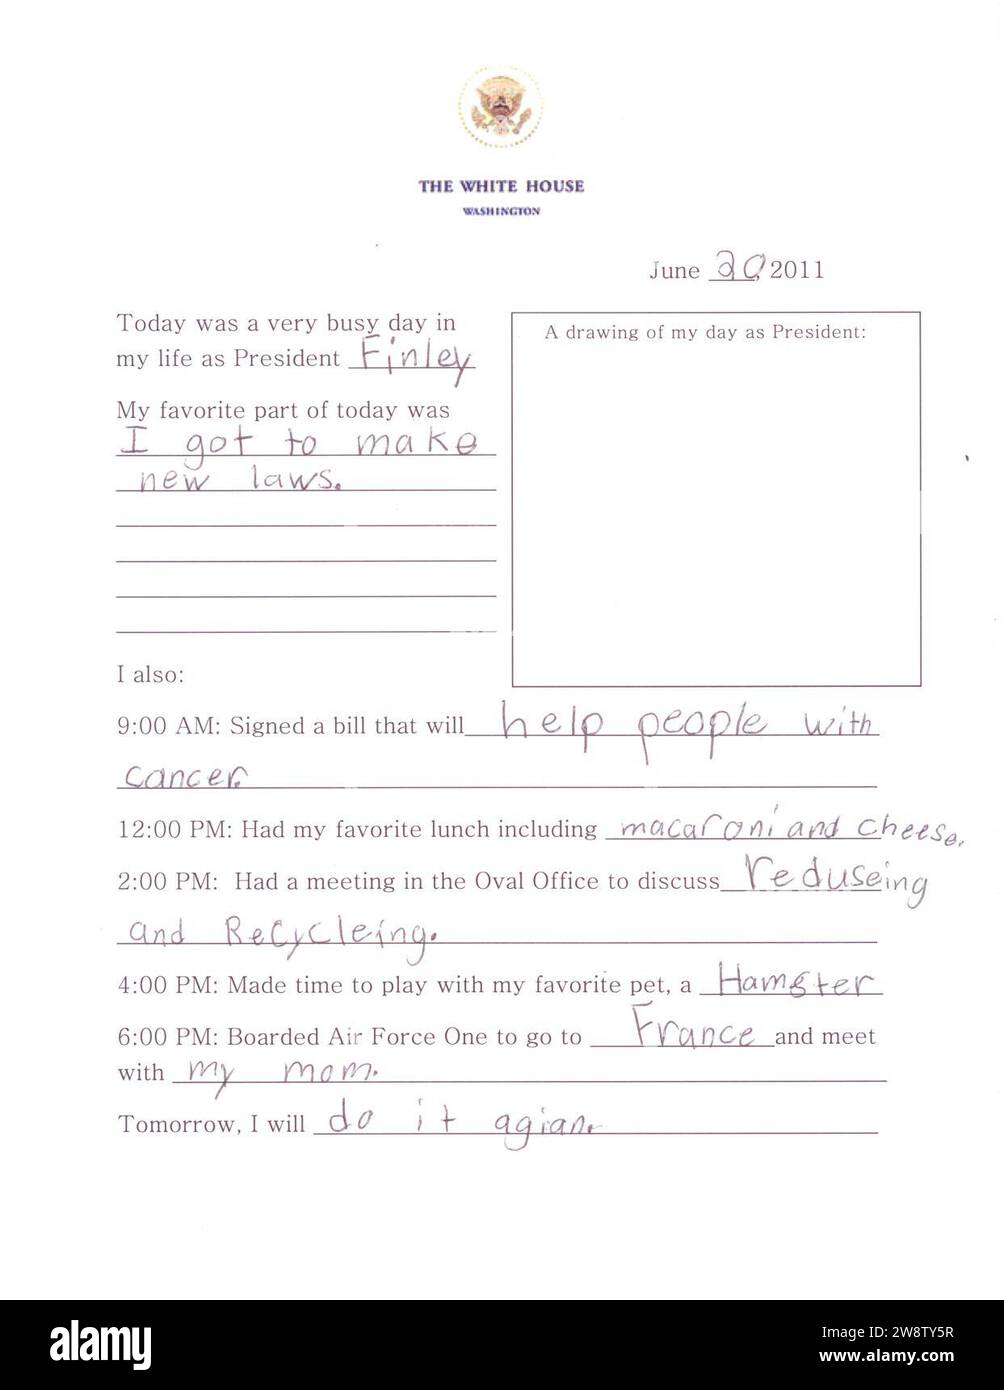 THE WHITE HOUSE
WASHINGTON
June 20, 2011
Today was a very busy day in
my life as President Finley
A drawing of my day as President:
My favorite part of today was
I got to make
new laws.
I also:
9:00 AM: Signed a bill that will help people with
cancer.
12:00 PM: Had my favorite lunch including macaroni and cheese.
2:00 PM: Had a meeting in the Oval Office to discuss reduseing
and Recycleing.
4:00 PM: Made time to play with my favorite pet, a Hamster
6:00 PM: Boarded Air Force One to go to France and meet
with my mom.
Tomorrow, I will do it agian.
alamy
Image ID: 2W8TY5R
www.alamy.com